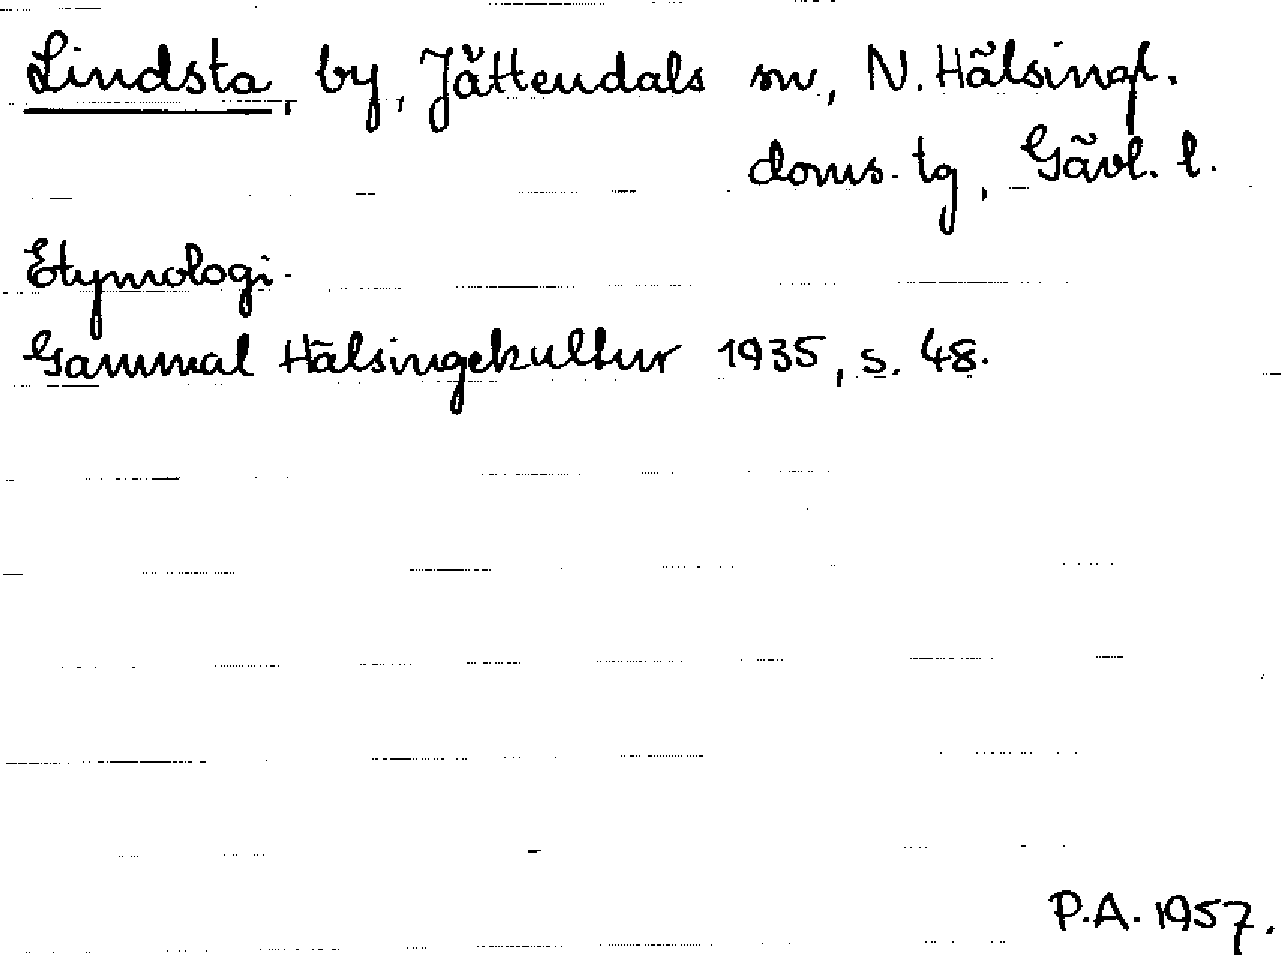 Lindsta, by, Jättendals sn, N. Hälsingl.
doms. tg, Gävl. l.
Etymologi.
Gammal Hälsingekultur 1935, s. 48.
P.A. 1957.